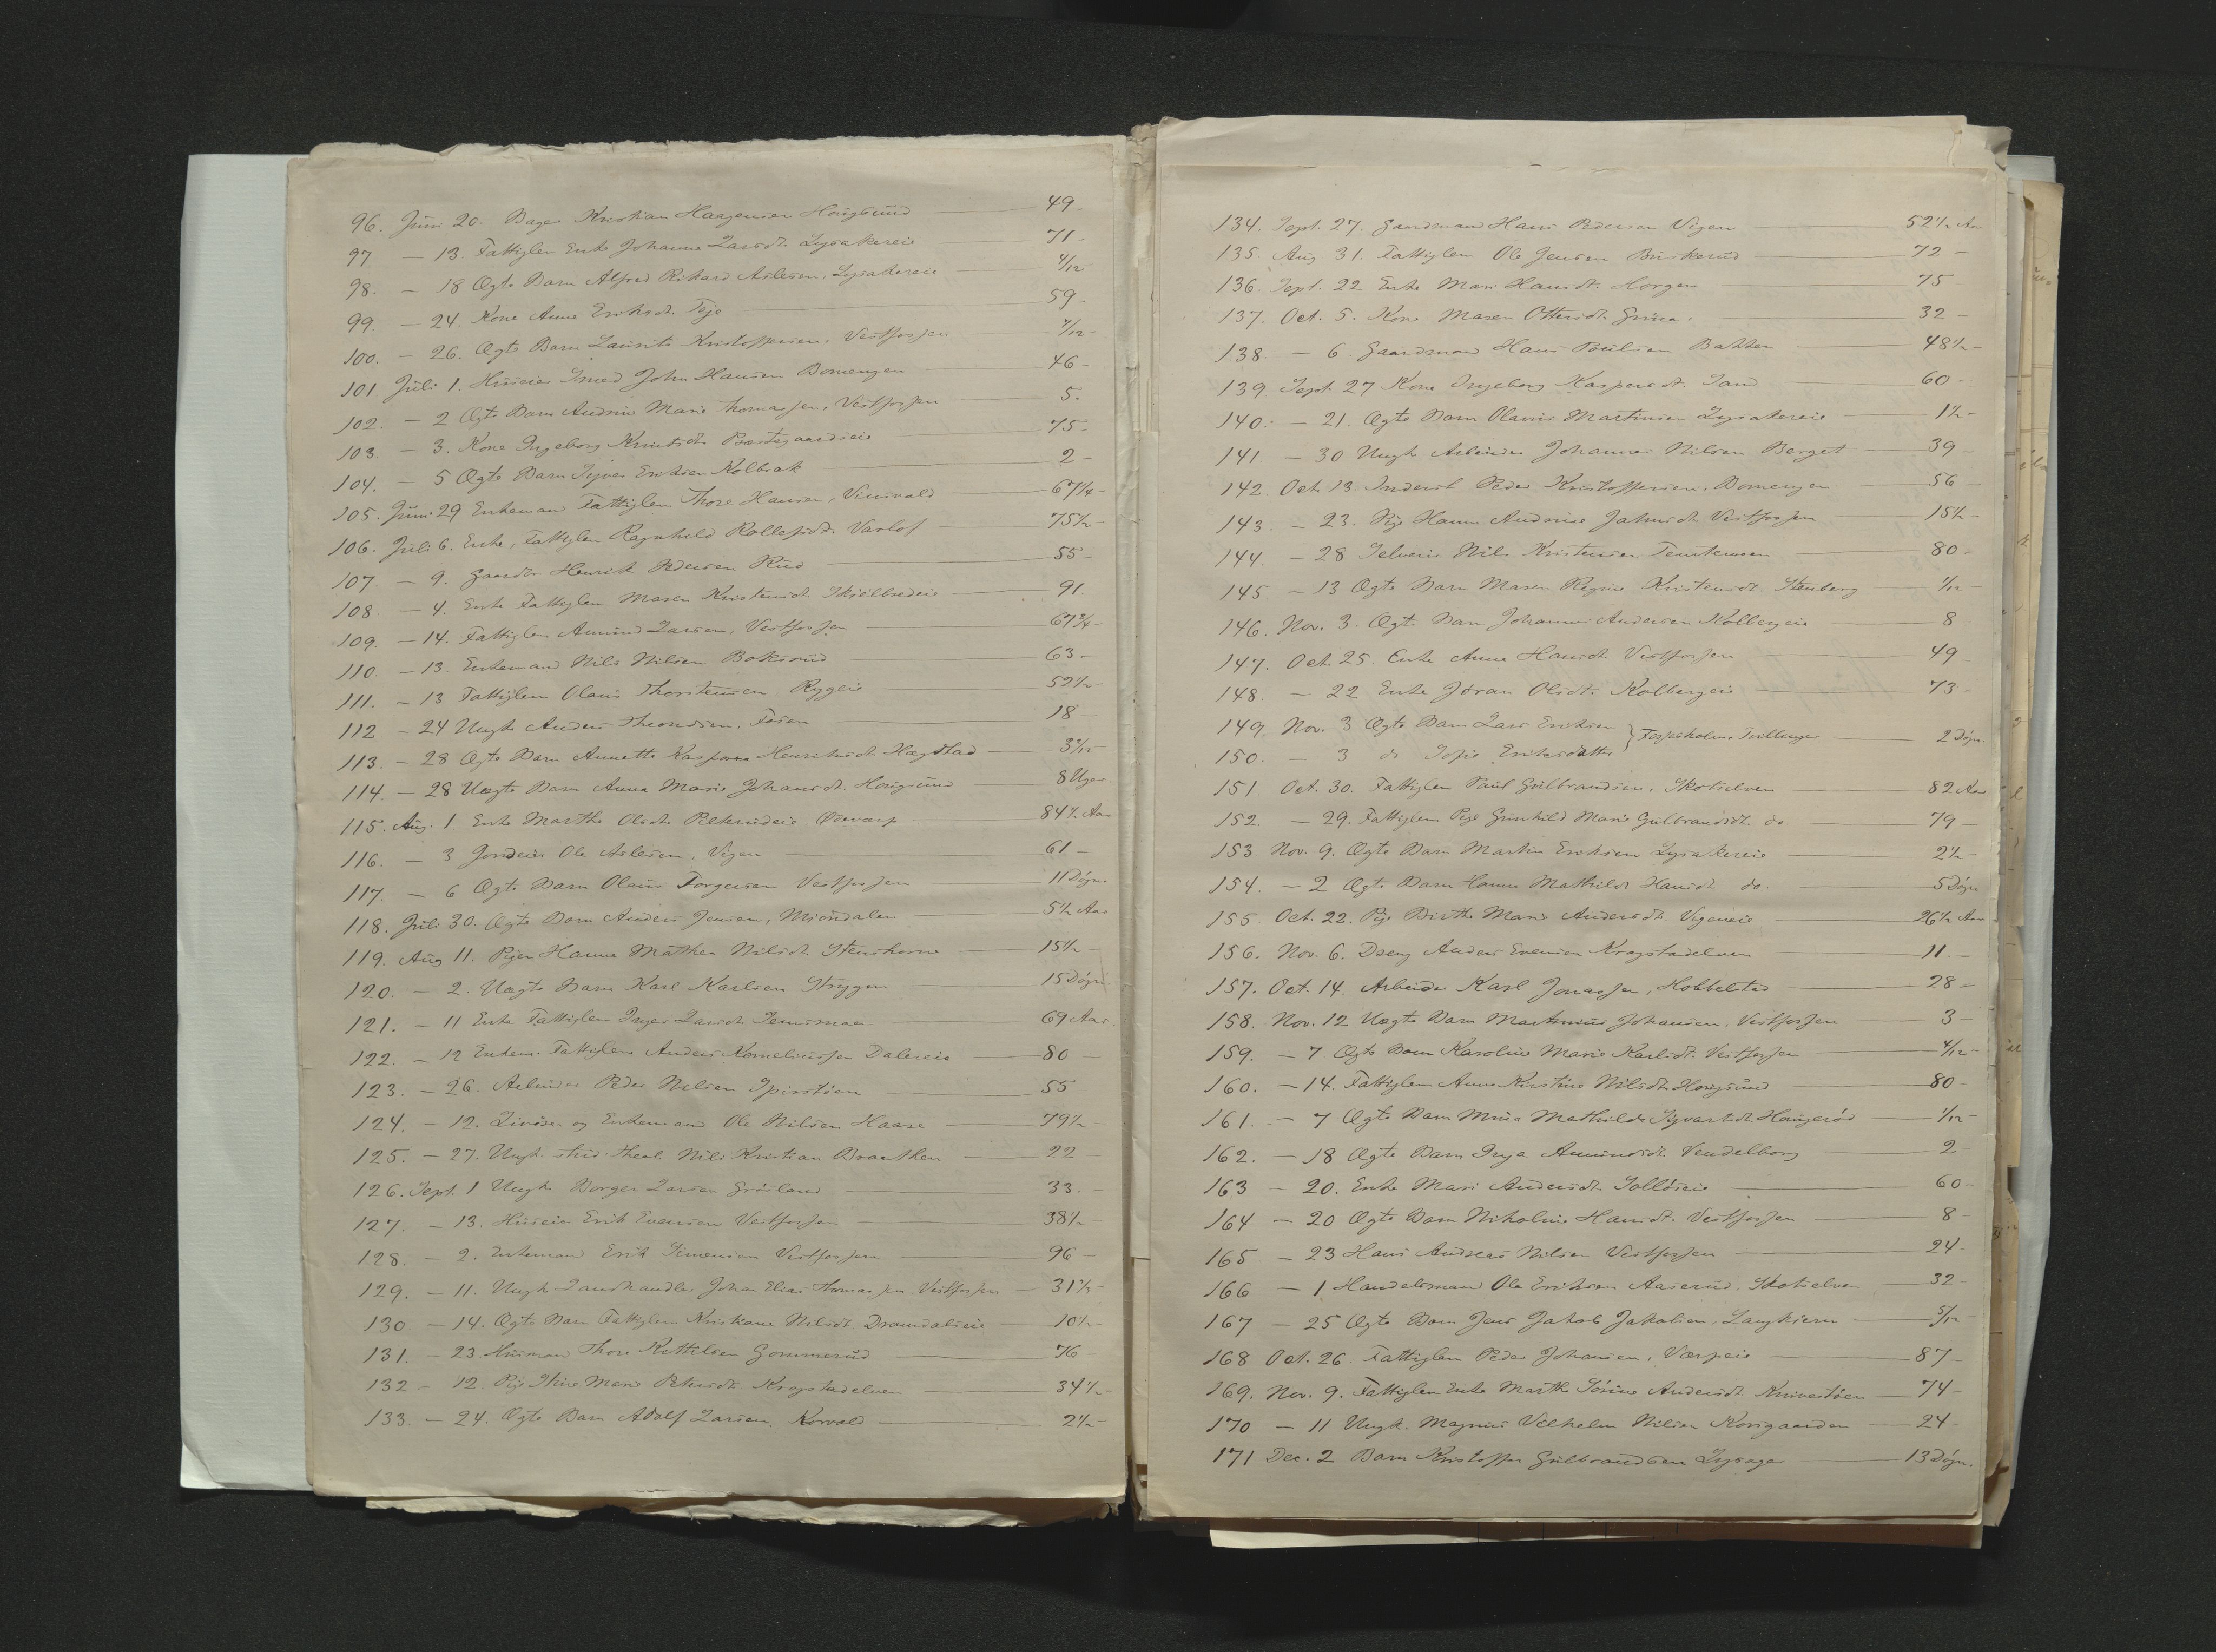 96. Juni 20. Bager Kristian Haagensen Hougsund — 49 -
97 — 13. Fattiglem Enke Johanne Larsdt. Lysakereie — 71 -
98. — 18 Ægte Barn Alfred Rikard Aslesen, Lysakereie — 4/12
99 — 24. Kone Anne Eriksdt. Teje — 59 -
100. — 26. Ægte Barn Laurits Kristoffersen, Vestfossen — 7/12 -
101 Juli 1. Huseier Smed John Hansen Domengen — 46 -
102. — 2 Ægte Barn Andrine Marie Thomassen, Vestfossen — 5.
103. — 3. Kone Ingeborg Knutsdt. — 75 -
104. — 5 Ægte Barn Syver Eriksen Kolbræk — 2 -
105. Juni 29 Enkemand Fattiglem Thore Hansen, — 67 1/4 -
106. Juli 6. Enke, Fattiglem Ragnhild Rollefsdt. Varlo — 75 1/2 -
107. — 9. Gaardbr. Henrik Pedersen Rud — 55 -
108. — 4. Enke Fattiglem Maren Kristensdt. — 91.
109. — 14. Fattiglem Amund Larsen, Vestfossen — 67 3/4 -
110 — 13. Enkemand Nils Nilsen Bakerud — 63 -
111. — 13 Fattiglem Olaus Thorstensen Byggeie — 52 1/2 -
112 — 24 Ungk. Anders Throndsen, Fosen — 18 -
113. — 28 Ægte Barn Annette Kaspara Henriksdt. Hagstad — 3 2/12 -
114. — 28 Uægte Barn Anna Marie Johansdt. Hougsund — 8 Uger
115. Aug. 1. Enke Marthe Olsdt. — 84 1/2 Aar
116. — 3 Jordeier Ole Aslesen, Vegen — 61 -
117. — 6 Ægte Barn Olaus Torgersen Vestfossen — 11 Døgn.
118. Juli 30. Ægte Barn Anders Jensen, Mjøndalen — 5 1/2 Aar
119. Aug 11. Pigen Hanne Mathea Nilsdt. Stenshorne — 15 1/2 -
120. — 2. Uægte Barn Karl Karlsen Strygen — 15 Døgn
121. — 11 Enke Fattiglem Inger Larsdt. — 69 Aar.
122. — 12 Enkem. Fattiglem Anders Korneliussen Dalereie — 80 -
123. — 26. Arbeider Peder Nilsen Spirstøen — 55
124. — 12. og Enkemand Ole Nilsen Haare — 79 1/2 -
125. — 27. Ungk. stud. theol. Nils Kristian Braathen — 22 -
126. Sept. 1 Ungk. Borger Larsen Grøsland — 33. -
127. — 13. Huseier Erik Evensen Vestfossen — 38 1/2 -
128. — 2. Enkemand Erik Simensen Vestfossen — 96 -
129. — 11. Ungk. Landhandler Johan Elias Thomassen Vestfossen — 31 1/2 -
130. — 14. Ægte Barn Fattiglem Kristiane Nilsdt. Dramdalseie — 10 1/2 -
131. — 23. Husmand Thore Kittilsen Gommerud — 76 -
132 — 12. Pige Stine Marie Krogstadelven — 34 1/2 -
133. — 24. Ægte Barn Adolf Larsen, Korvald — 2 1/2 -
134. Sept. 27. Gaardmand Hans Pedersen Vegen — 52 1/2 Aar
135. Aug 31. Fattiglem Ole Jensen Buskerud — 72 -
136. Sept. 22 Enke Mari Hansdt. Horgen — 75
137. Oct. 5. Kone Maren Ottersdt. — 32 -
138. — 6. Gaardmand Hans Poulsen Bakken — 48 1/2 -
139 Sept. 27 Kone Ingeborg Kaspersdt. Sand — 60 -
140. — 21. Ægte Barn Olaus Martinsen Lysakereie — 1 1/2 -
141. — 30 Ungk. Arbeider Johannes Nilsen Berget — 39 -
142. Oct. 13. Inderst Peder Kristoffersen, Domengen — 56 -
143. — 23. Pige Hanna Andrine Vestfossen — 15 1/2 -
144. — 28 Selveier Nils Kristensen — 80 -
145 — 13 Ægte Barn Maren Regine Kristensdt. Stenberg — 1/12 -
146. Nov. 3. Ægte Barn Johannes Andersen Kolbergeie — 8 -
147. Oct. 25. Enke Anne Hansdt. Vestfossen — 49 -
148. — 22 Enke Jøran Olsdt. Kolbergeie — 73 -
149. Nov. 3 Ægte Barn Lars Eriksen } Fossesholm, Tvillinger — 2 Døgn.
150. — 3 do Sofie Eriksdatter
151. Oct. 30. Fattiglem Paul Gulbrandsen, Skotselven — 82 Aar
152. — 29. Fattiglem Pige Gunhild Marie Gulbrandsdt. do — 79 -
153 Nov. 9. Ægte Barn Martin Eriksen Lysakereie — 2 1/2 -
154. — 2 Ægte Barn Hanna Mathilde Hansdt. do. — 5 Døgn
155. Oct. 22. Pige Birthe Marie Andersdt. Vegeneie — 26 1/2 Aar
156. Nov. 6. Dreng Anders Evensen Krogstadelven — 11. -
157. Oct. 14. Arbeider Karl Jonassen, Hobbelstad — 28 -
158. Nov. 12 Uægte Barn Martinius Johansen, Vestfossen — 3 -
159. — 7 Ægte Barn Karoline Marie Karlsdt. Vestfossen — 4/12 -
160. — 14. Fattiglem Anne Kirstine Nilsdt. Hougsund — 80 -
161. — 7 Ægte Barn Mina Mathilde Syvertsdt. Haugerød — 1/12 -
162. — 18 Ægte Barn Inga Amundsdt. Vendelborg — 2 -
163 — 20. Enke Mari Andersdt. — 60 -
164 — 20 Ægte Barn Nikoline Hansdt. Vestfossen — 8 -
165 — 23 Hans Andreas Nilsen Vestfossen — 24 -
166 — 1 Handelsmand Ole Eriksen Aaserud, Skotselven — 32 -
167 — 25 Ægte Barn Jens Jakob Jakobsen, Langkjern — 5/12 -
168 Oct. 26. Fattiglem Peder Johansen, — 87 -
169. Nov. 9. Fattiglem Enke Marthe Sørine Andersdt. Knivestøen — 74 -
170 — 11 Ungk. Magnus Vilhelm Nilsen Korsgaarden — 24 -
171 Dec. 2 Barn Kristoffer Gulbrandsen Lysager — 13 Døgn.